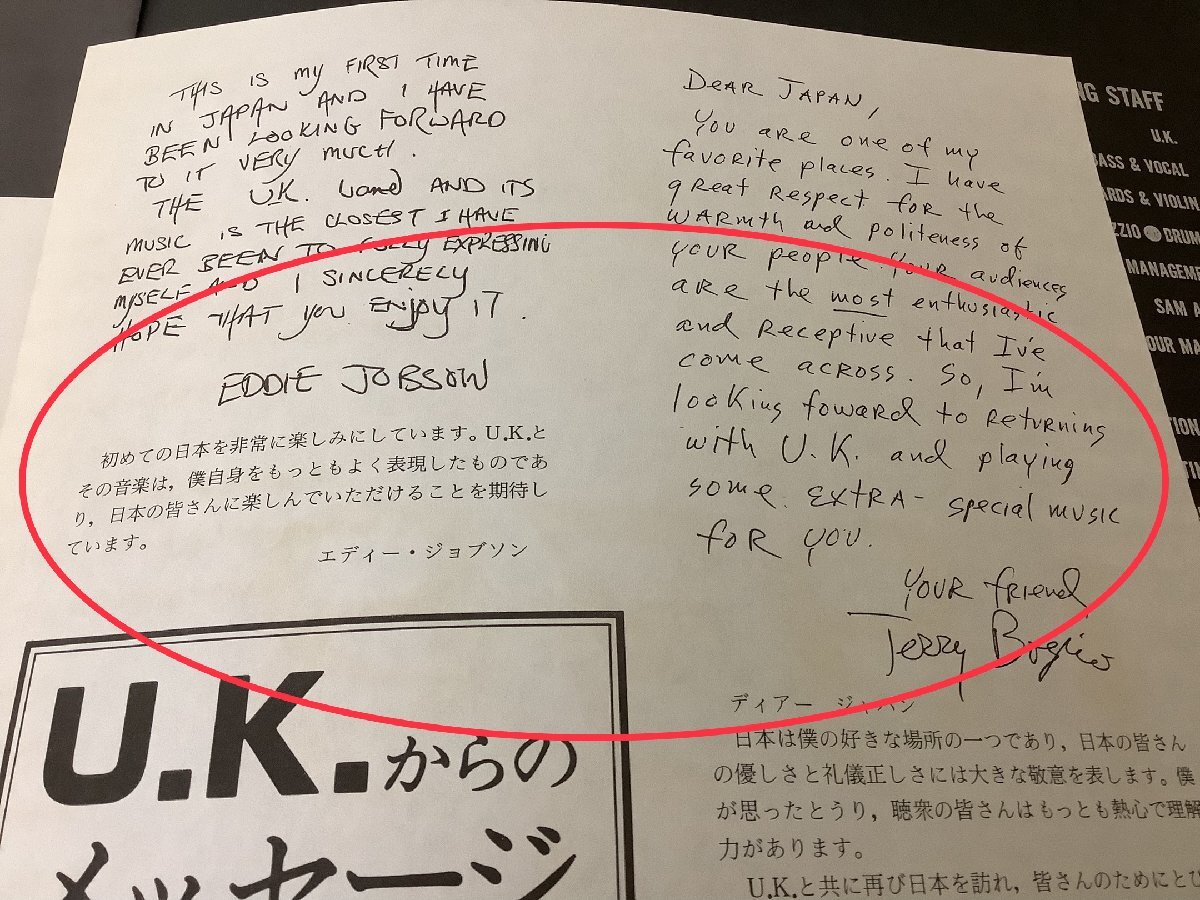 THIS IS my FIRST TIME
IN JAPAN AND I HAVE
BEEN LOOKING FORWARD
TO IT VERY MUCH.
THE U.K. band AND ITS
MUSIC IS THE CLOSEST I HAVE
EVER BEEN TO FULLY EXPRESSING
MYSELF AND I SINCERELY
HOPE THAT YOU ENJOY IT.
EDDIE JOBSON
初めての日本を非常に楽しみにしています。U.K.と
その音楽は，僕自身をもっともよく表現したものであ
り，日本の皆さんに楽しんでいただけることを期待し
ています。
エディー・ジョブソン
U.K.からの
メッセージ
DEAR JAPAN,
YOU ARE one of my
favorite places. I have
great respect for the
warmth and politeness of
your people. Your audiences
are the most enthusiastic
and receptive that I've
come across. So, I'm
looking foward to returning
with U.K. and playing
some extra-special music
for you.
Your friend
Terry Bozzio
ディアー ジャパン
日本は僕の好きな場所の一つであり，日本の皆さん
の優しさと礼儀正しさには大きな敬意を表します。僕
が思ったとうり，聴衆の皆さんはもっとも熱心で理解
力があります。
U.K.と共に再び日本を訪れ，皆さんのためにとび
NG STAFF
U.K.
BASS & VOCAL
ARDS & VIOLIN
ZZIO DRUM
MANAGEME
SAM A
OUR MA
TION